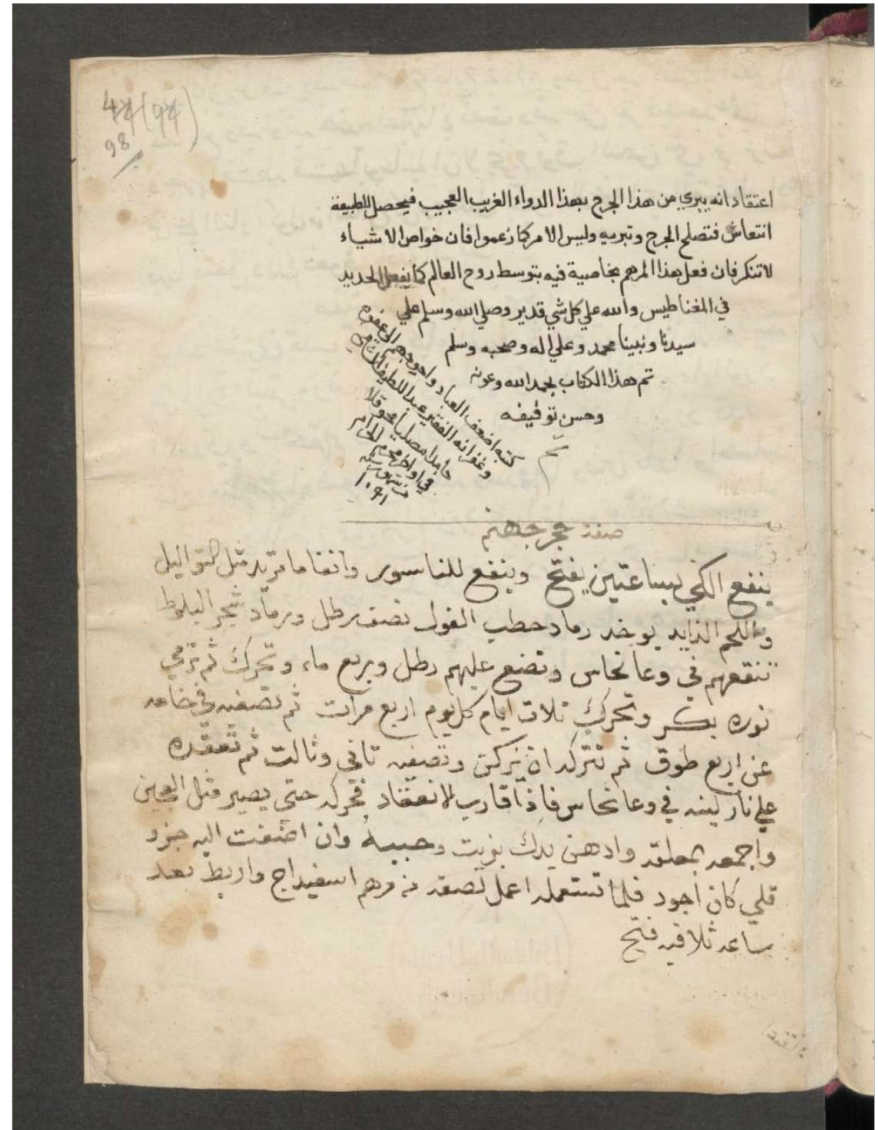 44 (94)
98
اعتقاد انه يبري من هذا الجرح بهذا الدواء الغريب العجيب فيحصل للطبيعة
انتعاش فتصلح الجرح وتبريه وليس الامر كما زعموا فان خواص الاشياء
لا تنكر فان فعل هذا المرهم بخاصية فيه بتوسط روح العالم كما يفعل الحديد
في المغناطيس والله علي كل شي قدير وصلي الله وسلم علي
سيدنا ونبينا محمد وعلي اله وصحبه وسلم
تم هذا الكتاب بحمد الله وعونه
وحسن توفيقه
كتبه اضعف العباد واحوجهم الي عفوه
وغفرانه الفقير عبد اللطيف
حامدا مصليا محوقلا
في اواخر محرم الحرام
من شهور سنه
١٠٩١
صفة حجر جهنم
ينفع الكي بساعتين يفتح وينفع للناسور وانفاما تريد مثل التواليل
واللحم الزايد يوخد رماد حطب الفول نصف رطل ورماد شجر البلوط
تنقعهم في وعا نحاس وتضع عليهم رطل وربع ماء وتحرك ثم ترمي
نوره بكر وتحرك تلات ايام كل يوم اربع مرات ثم تصفيه في
عن اربع طوق ثم تتركه ان يركن وتصفيه تاني وتالت ثم تعقده
علي نار لينه في وعا نحاس فاذا قارب للانعقاد فحركه حتى يصير مثل العجين
واجمعه بمعلقه وادهن يدك بزيت وحببه وان اضفت اليه جزو
قلي كان اجود فلما تستعمله اعمل لصقه من مرهم اسفيداج واربط بعد
ساعه تلاقيه فتح